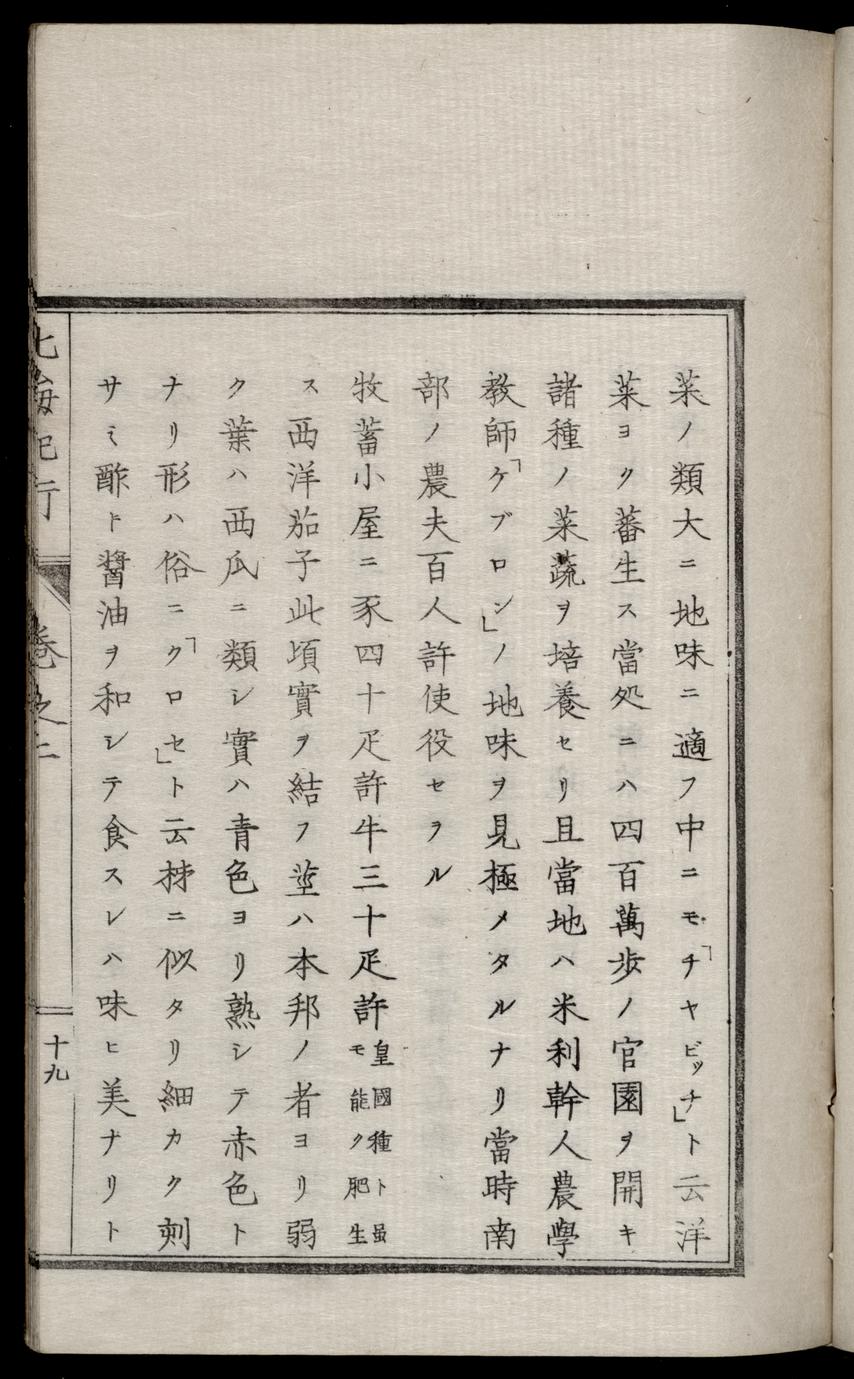 菜ノ類大ニ地味ニ適フ中ニモ「チヤビッチ」ト云洋
菜ヨク蕃生ス當処ニハ四百萬歩ノ官園ヲ開キ
諸種ノ菜蔬ヲ培養セリ且當地ハ米利幹人農學
教師「ケブロシ」ノ地味ヲ見極メタルナリ當時南
部ノ農夫百人許使役セラル
牧蓄小屋ニ豕四十疋許牛三十疋許皇國種ト虽モ能ク肥生
ス西洋茄子此頃實ヲ結フ莖ハ本邦ノ者ヨリ弱
ク葉ハ西瓜ニ類シ實ハ青色ヨリ熟シテ赤色ト
ナリ形ハ俗ニ「クロセ」ト云柹ニ似タリ細カク刻
サミ酢ト醤油ヲ和シテ食スレハ味ヒ美ナリト
北海紀行
卷之二
十九